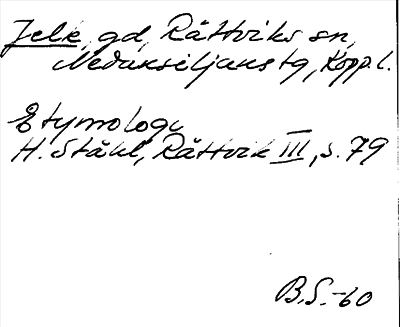 Jele, gd, Rättviks sn,
Nedansiljans tg, Kopp. l.
Etymologi
H. Ståhl, Rättvik III, s. 79
B.S. -60